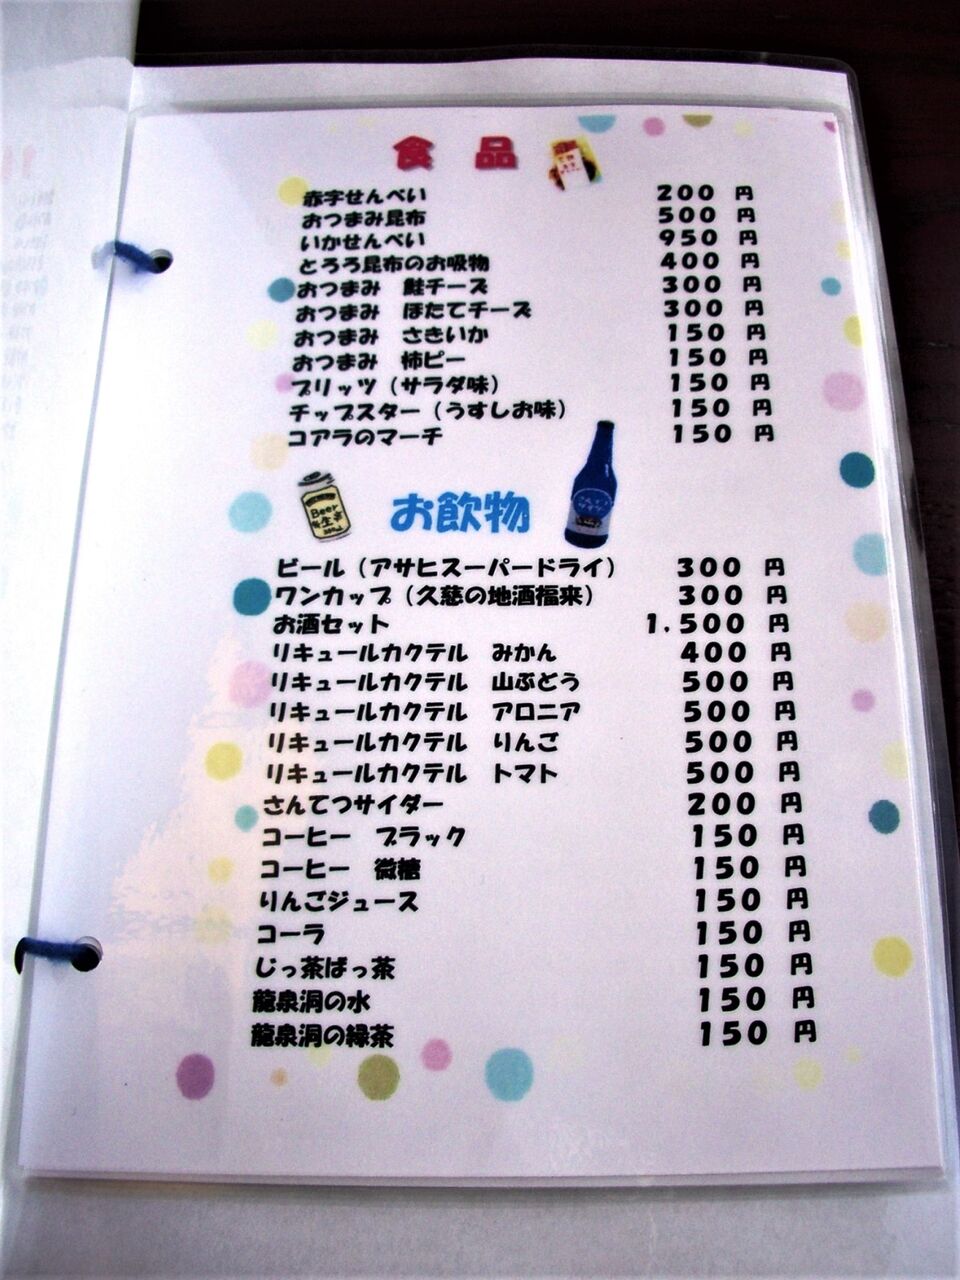 食 品
赤字せんべい 200 円
おつまみ昆布 500 円
いかせんべい 950 円
とろろ昆布のお吸物 400 円
おつまみ 鮭チーズ 300 円
おつまみ ほたてチーズ 300 円
おつまみ さきいか 150 円
おつまみ 柿ピー 150 円
プリッツ（サラダ味） 150 円
チップスター（うすしお味） 150 円
コアラのマーチ 150 円
Beer
生
お飲物
ビール（アサヒスーパードライ） 300 円
ワンカップ（久慈の地酒福来） 300 円
お酒セット 1.500 円
リキュールカクテル みかん 400 円
リキュールカクテル 山ぶどう 500 円
リキュールカクテル アロニア 500 円
リキュールカクテル りんご 500 円
リキュールカクテル トマト 500 円
さんてつサイダー 200 円
コーヒー ブラック 150 円
コーヒー 微糖 150 円
りんごジュース 150 円
コーラ 150 円
じっ茶ばっ茶 150 円
龍泉洞の水 150 円
龍泉洞の緑茶 150 円